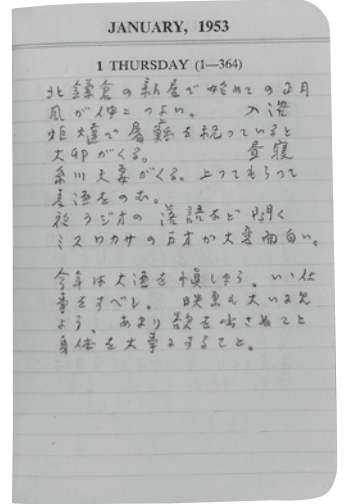 JANUARY, 1953
1 THURSDAY (1—364)
北鎌倉の新居で始めての正月
風が仲々つよい。 入浴
炬燵で屠蘇を祝っていると
がくる。 昼寝
夫妻がくる。上ってもらって
酒をのむ。
夜ラジオの落語など聞く
ミスワカサの万才が大変面白い。
今年は大酒を慎しまう。いい仕
事をすべし。 映画も大いに見
よう、 あまり欲を出さぬこと
身体を大事にすること。